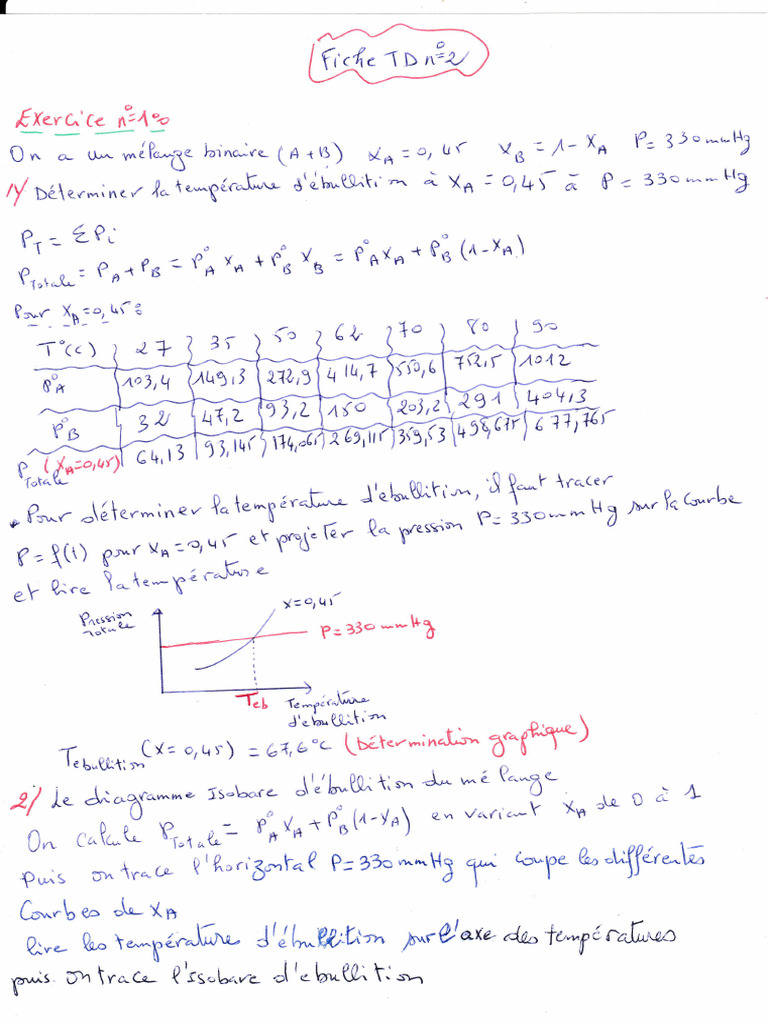 Fiche TD n°2
Exercice n°1:
On a un mélange binaire (A+B) xA = 0,45 xB = 1 - xA P = 330 mmHg
1) Déterminer la température d'ébullition à xA = 0,45 à P = 330 mmHg
PT = ΣPi
PTotale = PA + PB = P°A xA + P°B xB = P°A xA + P°B (1 - xA)
Pour xA = 0,45:
T°(c) 27 35 50 62 70 80 90
P°A 103,4 149,3 272,9 414,7 550,6 752,5 1012
P°B 32 47,2 93,2 150 203,2 291 404,3
PTotale (xA=0,45) 64,13 93,145 174,065 269,115 359,53 498,675 677,765
• Pour déterminer la température d'ébullition, il faut tracer
P = f(t) pour xA = 0,45 et projeter la pression P = 330 mmHg sur la courbe
et lire la température
Pression totale
x = 0,45
P = 330 mmHg
Teb
Température d'ébullition
Tebullition (x = 0,45) = 67,6°c (Détermination graphique)
2) Le diagramme Isobare d'ébullition du mélange
On calcule PTotale = P°A xA + P°B (1 - xA) en variant xA de 0 à 1
Puis on trace l'horizontal P = 330 mmHg qui coupe les différentés
Courbes de xA
lire les température d'ébullition sur l'axe des températures
puis on trace l'Issobare d'ebullition